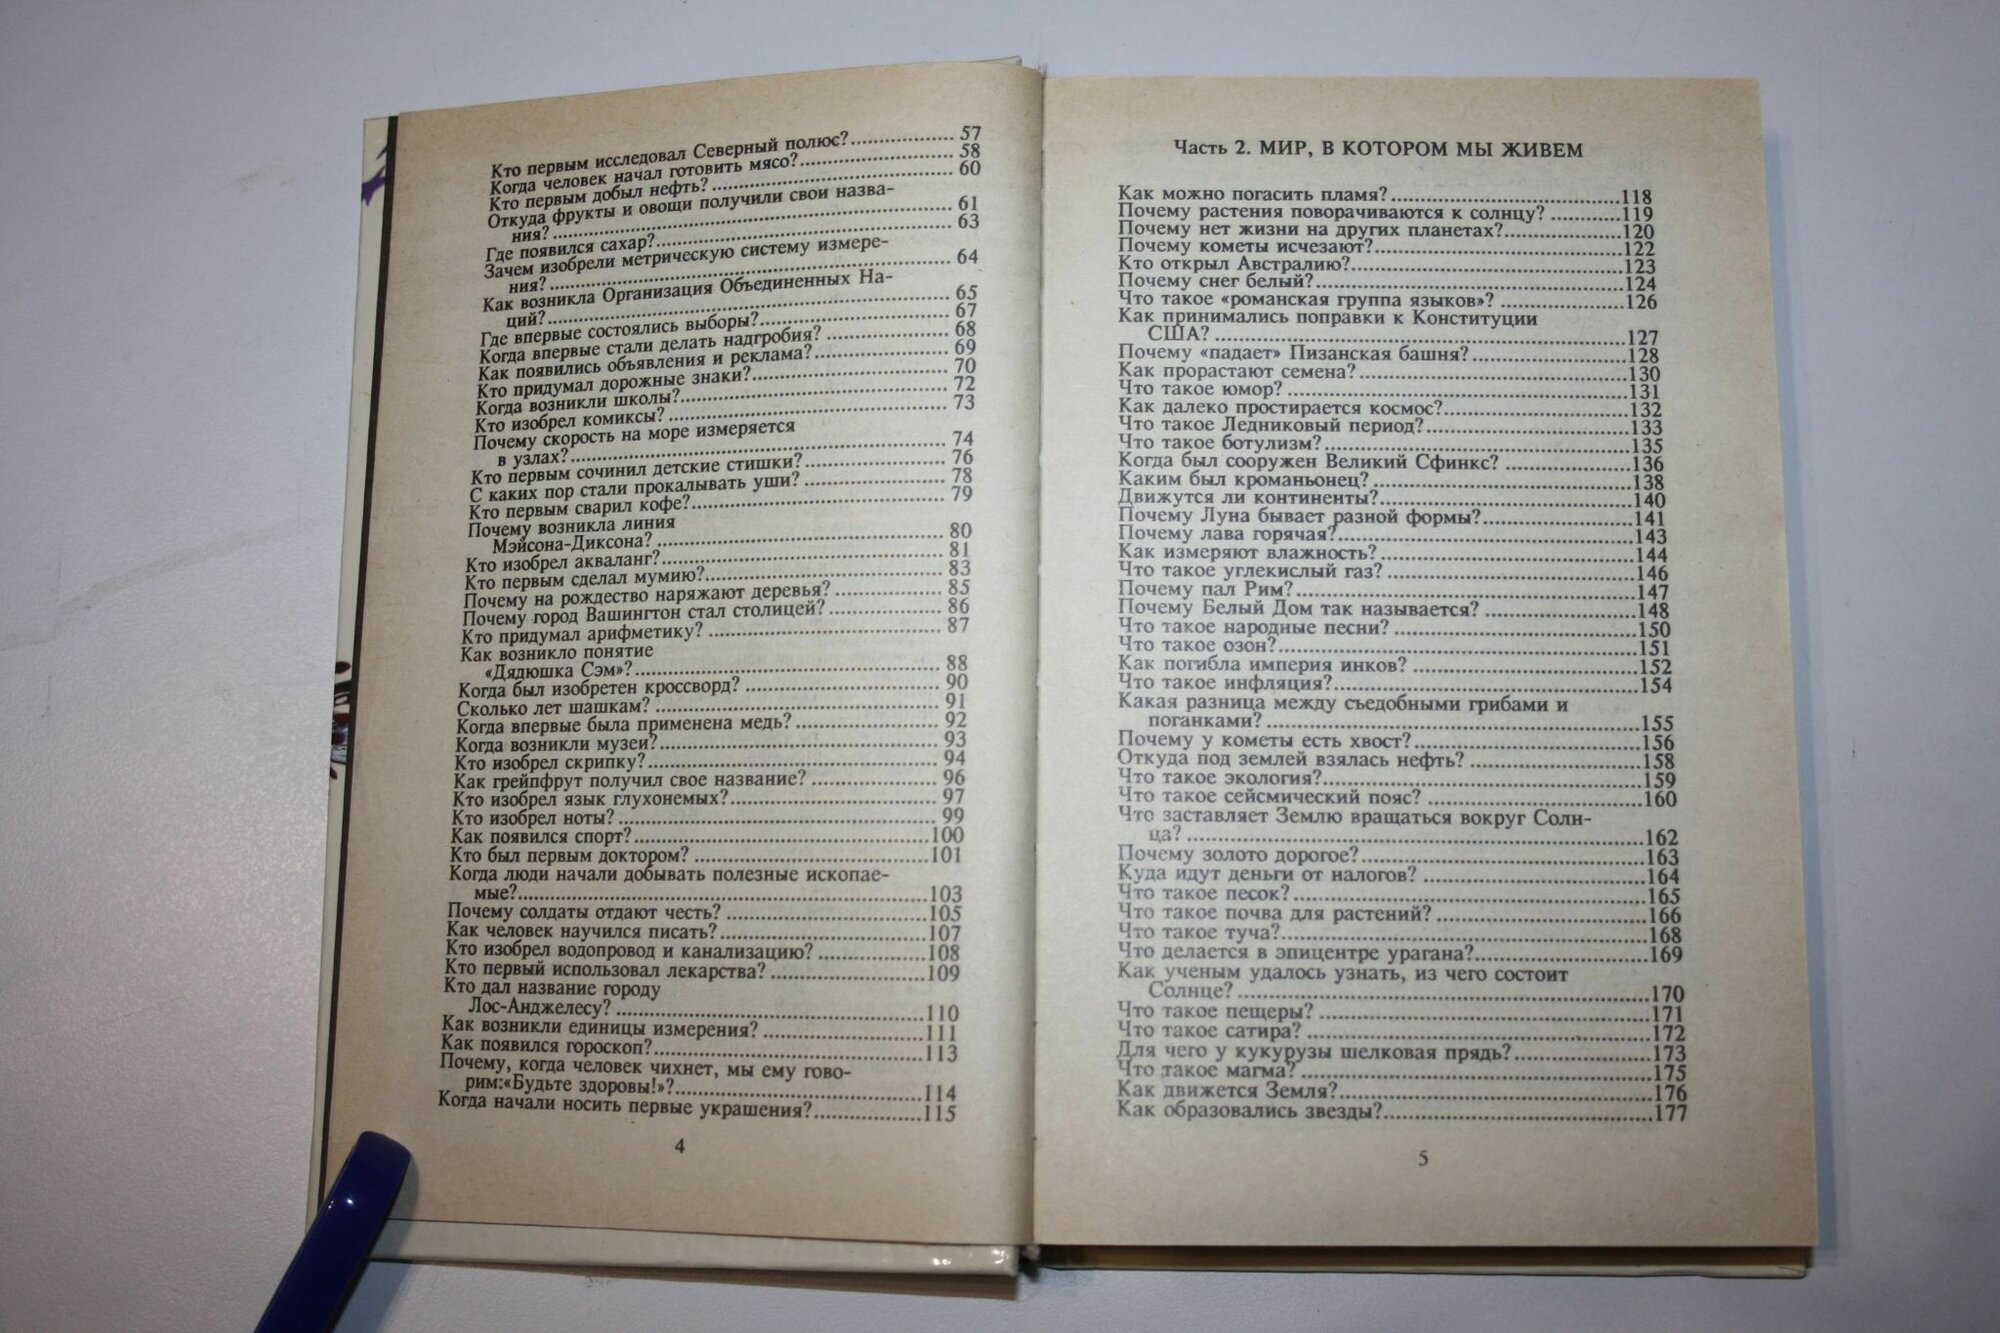 Кто первым исследовал Северный полюс?.................. 57
Когда человек начал готовить мясо?.......................... 58
Кто первым добыл нефть? ......................................... 60
Откуда фрукты и овощи получили свои назва-
ния? ................................................................ 61
Где появился сахар?.................................................. 63
Зачем изобрели метрическую систему измере-
ния? ................................................................ 64
Как возникла Организация Объединенных На-
ций?................................................................ 65
Где впервые состоялись выборы?............................... 67
Когда впервые стали делать надгробия? ................... 68
Как появились объявления и реклама?...................... 69
Кто придумал дорожные знаки?................................ 70
Когда возникли школы?............................................ 72
Кто изобрел комиксы? .............................................. 73
Почему скорость на море измеряется
в узлах?............................................................ 74
Кто первым сочинил детские стишки?....................... 76
С каких пор стали прокалывать уши? ....................... 78
Кто первым сварил кофе?......................................... 79
Почему возникла линия
Мэйсона-Диксона? ........................................... 80
Кто изобрел акваланг?.............................................. 81
Кто первым сделал мумию?...................................... 83
Почему на рождество наряжают деревья? ................ 85
Почему город Вашингтон стал столицей? ................. 86
Кто придумал арифметику? ...................................... 87
Как возникло понятие
«Дядюшка Сэм»? .............................................. 88
Когда был изобретен кроссворд? .............................. 90
Сколько лет шашкам? ............................................... 91
Когда впервые была применена медь? ...................... 92
Когда возникли музеи?............................................. 93
Кто изобрел скрипку?............................................... 94
Как грейпфрут получил свое название? .................... 96
Кто изобрел язык глухонемых?................................. 97
Кто изобрел ноты? ................................................... 99
Как появился спорт?................................................100
Кто был первым доктором? .....................................101
Когда люди начали добывать полезные ископае-
мые?................................................................103
Почему солдаты отдают честь? ................................105
Как человек научился писать?..................................107
Кто изобрел водопровод и канализацию? .................108
Кто первый использовал лекарства? .........................109
Кто дал название городу
Лос-Анджелесу? ...............................................110
Как возникли единицы измерения? ..........................111
Как появился гороскоп?...........................................113
Почему, когда человек чихнет, мы ему гово-
рим:«Будьте здоровы!»?.....................................114
Когда начали носить первые украшения?..................115
4
Часть 2. МИР, В КОТОРОМ МЫ ЖИВЕМ
Как можно погасить пламя?.....................................118
Почему растения поворачиваются к солнцу? ............119
Почему нет жизни на других планетах?....................120
Почему кометы исчезают?.......................................122
Кто открыл Австралию?..........................................123
Почему снег белый?................................................124
Что такое «романская группа языков»? ....................126
Как принимались поправки к Конституции
США? ..............................................................127
Почему «падает» Пизанская башня?.........................128
Как прорастают семена?..........................................130
Что такое юмор?.....................................................131
Как далеко простирается космос?.............................132
Что такое Ледниковый период?................................133
Что такое ботулизм?................................................135
Когда был сооружен Великий Сфинкс? ....................136
Каким был кроманьонец?........................................138
Движутся ли континенты?.......................................140
Почему Луна бывает разной формы?........................141
Почему лава горячая?..............................................143
Как измеряют влажность?........................................144
Что такое углекислый газ? .......................................146
Почему пал Рим?.....................................................147
Почему Белый Дом так называется? .........................148
Что такое народные песни? ......................................150
Что такое озон?.......................................................151
Как погибла империя инков? ....................................152
Что такое инфляция?................................................154
Какая разница между съедобными грибами и
поганками?.......................................................155
Почему у кометы есть хвост?....................................156
Откуда под землей взялась нефть? ............................158
Что такое экология?.................................................159
Что такое сейсмический пояс? ..................................160
Что заставляет Землю вращаться вокруг Солн-
ца? ..................................................................162
Почему золото дорогое?...........................................163
Куда идут деньги от налогов? ...................................164
Что такое песок?......................................................165
Что такое почва для растений? .................................166
Что такое туча?........................................................168
Что делается в эпицентре урагана?............................169
Как ученым удалось узнать, из чего состоит
Солнце? ...........................................................170
Что такое пещеры? ..................................................171
Что такое сатира? ....................................................172
Для чего у кукурузы шелковая прядь?.......................173
Что такое магма? .....................................................175
Как движется Земля?................................................176
Как образовались звезды?.........................................177
5